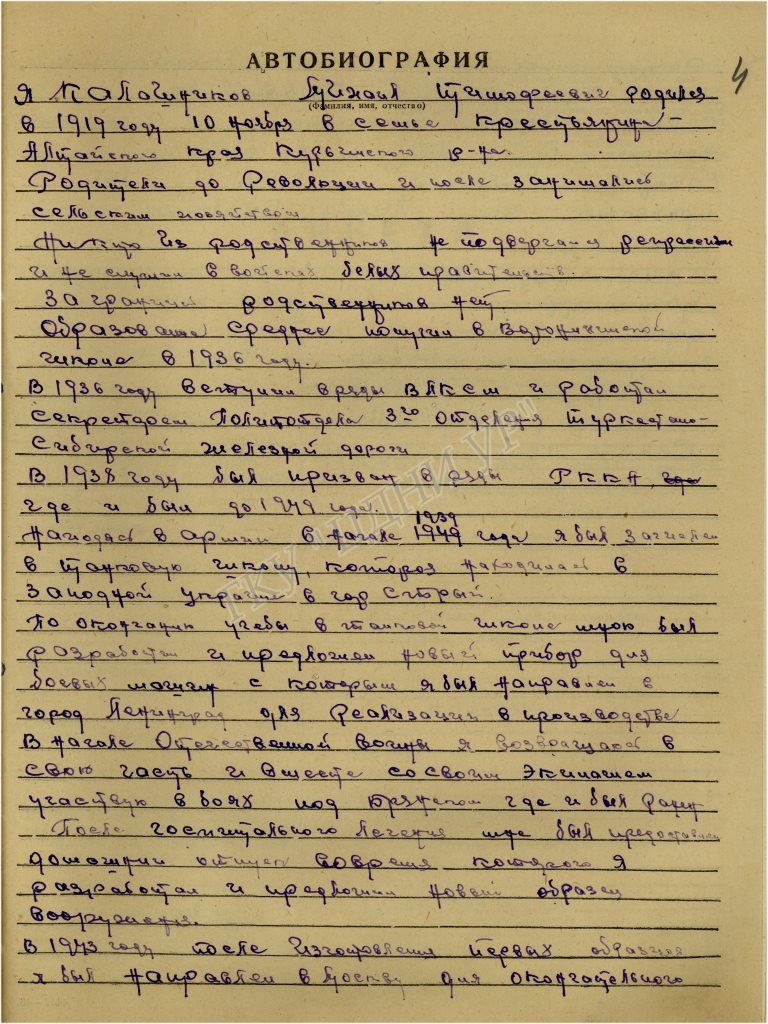 4
АВТОБИОГРАФИЯ
Я Калашников Михаил Тимофеевич родился
(Фамилия, имя, отчество)
в 1919 году 10 ноября в семье крестьянина –
Алтайского края Курьинского р-на.
Родители до Революции и после занимались
сельским хозяйством
Никто из родственников не подвергался репрессиям
и не служил в войсках белых правительств.
За границей родственников нет
Образование среднее получил в
школе в 1936 году.
В 1936 году вступил в ряды ВЛКСМ и работал
секретарем Политотдела 3го отделения Туркестано-
Сибирской железной дороги
В 1938 году был призван в ряды РККА, где
где и был до 1949 года.
1939
Находясь в армии в начале 1949 года я был зачислен
в танковую школу, которая находилась в
Западной украине в гор Стрый.
По окончании учебы в танковой школе мною был
разработан и предложен новый прибор для
боевых машин с которым я был направлен в
город Ленинград для Реализации в производстве
В начале Отечественной войны я возвращаюсь в
свою часть и вместе со своим экипажем
участвую в боях под Брянском где и был ранен
После госпитального лечения мне был предоставлен
домашний отпуск вовремя которого я
разработал и предложил новый образец
вооружения.
В 1943 году после изготовления первых образцов
я был направлен в Москву для окончательного
ГКУ "ЦДНИ УР"